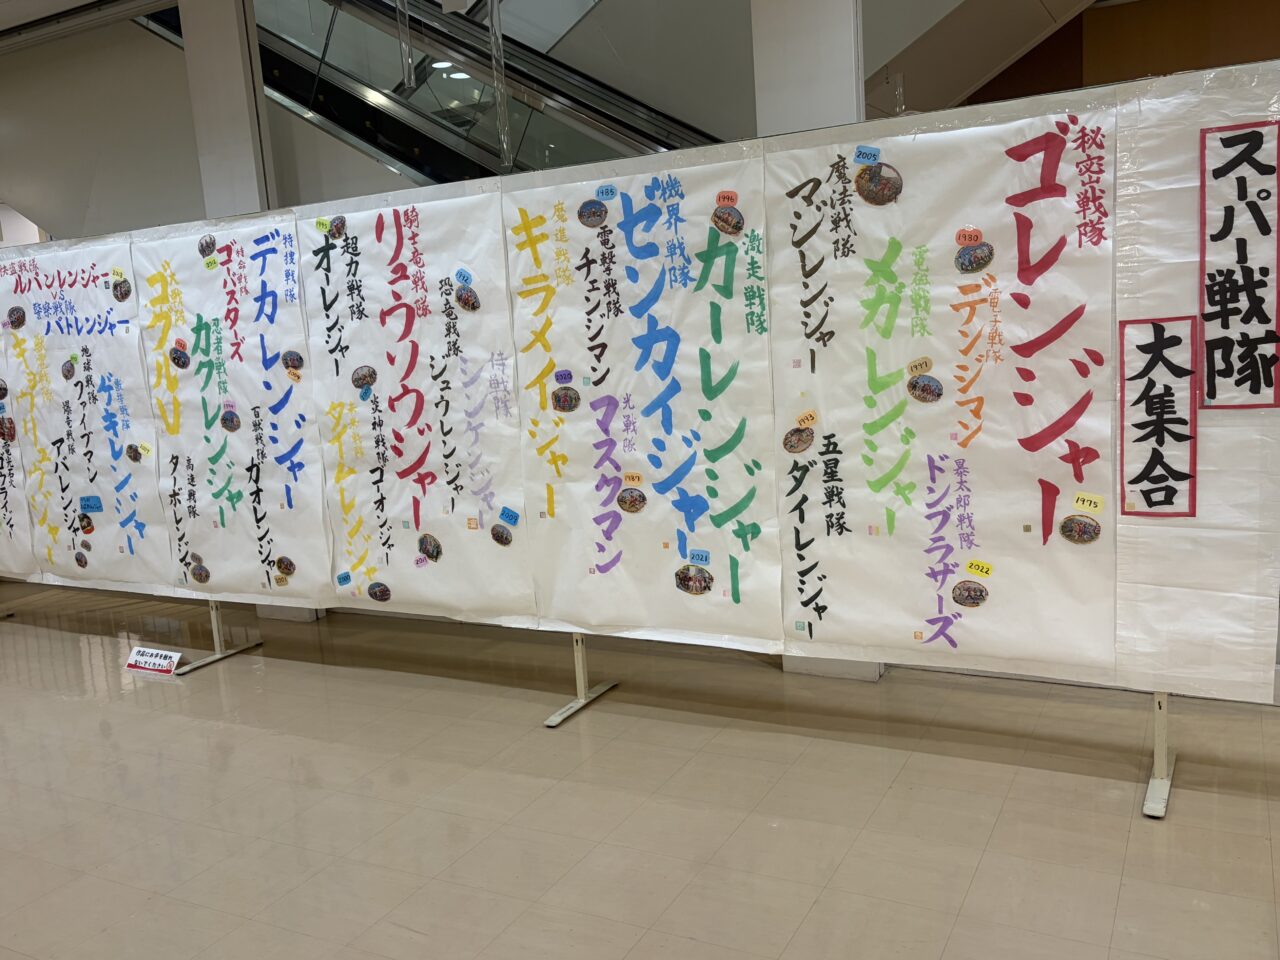 スーパー戦隊
大集合
秘密戦隊
ゴレンジャー
1975
電子戦隊
デンジマン
1980
暴太郎戦隊
ドンブラザーズ
2022
電磁戦隊
メガレンジャー
1997
魔法戦隊
マジレンジャー
2005
五星戦隊
ダイレンジャー
1993
激走戦隊
カーレンジャー
1996
機界戦隊
ゼンカイジャー
2021
電撃戦隊
チェンジマン
1985
光戦隊
マスクマン
1987
魔進戦隊
キラメイジャー
2020
侍戦隊
シンケンジャー
2009
恐竜戦隊
ジュウレンジャー
1992
騎士竜戦隊
リュウソウジャー
2019
超力戦隊
オーレンジャー
1995
炎神戦隊
ゴーオンジャー
タイムレンジャー
2000
特捜戦隊
デカレンジャー
百獣戦隊
ガオレンジャー
2001
特命戦隊
ゴーバスターズ
忍者戦隊
カクレンジャー
高速戦隊
ターボレンジャー
大戦隊
ゴーグルV
ルパンレンジャー
VS
警察戦隊
パトレンジャー
2018
獣拳戦隊
ゲキレンジャー
地球戦隊
ファイブマン
爆竜戦隊
アバレンジャー
キョウリュウジャー
作品にお手を触れ
ないでください